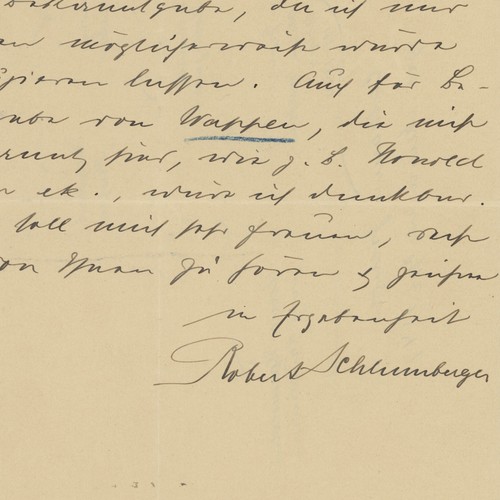 Bekanntgabe, die ich mir
möglicherweise würde
lassen. Auch für Be-
von Wappen, die mich
sind, wie z. B. Honold
etc., wäre ich dankbar.
soll mich sehr freuen, recht
von Ihnen zu hören & zeichne
in Ergebenheit
Robert Schlumberger